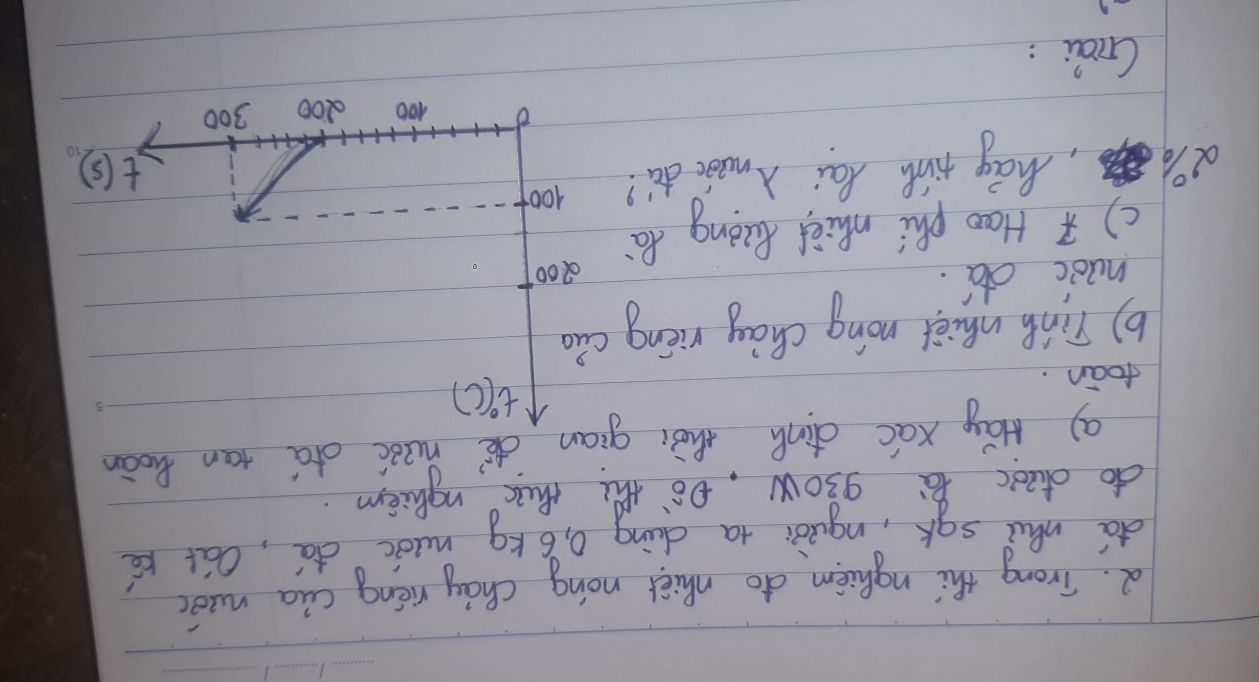 2. Trong thí nghiệm đo nhiệt nóng chảy riêng của nước
đá như sgk, người ta dùng 0,6 kg nước đá, Oát kế
đo được là 930W. Đồ thị thực nghiệm.
a) Hãy xác định thời gian để nước đá tan hoàn
toàn.
b) Tính nhiệt nóng chảy riêng của
nước đá.
c) Hao phí nhiệt lượng là
2% , hãy tính lại λ nước đá?
Giải :
t°(C)
200
100
0
100
200
300
t(s)
5
10